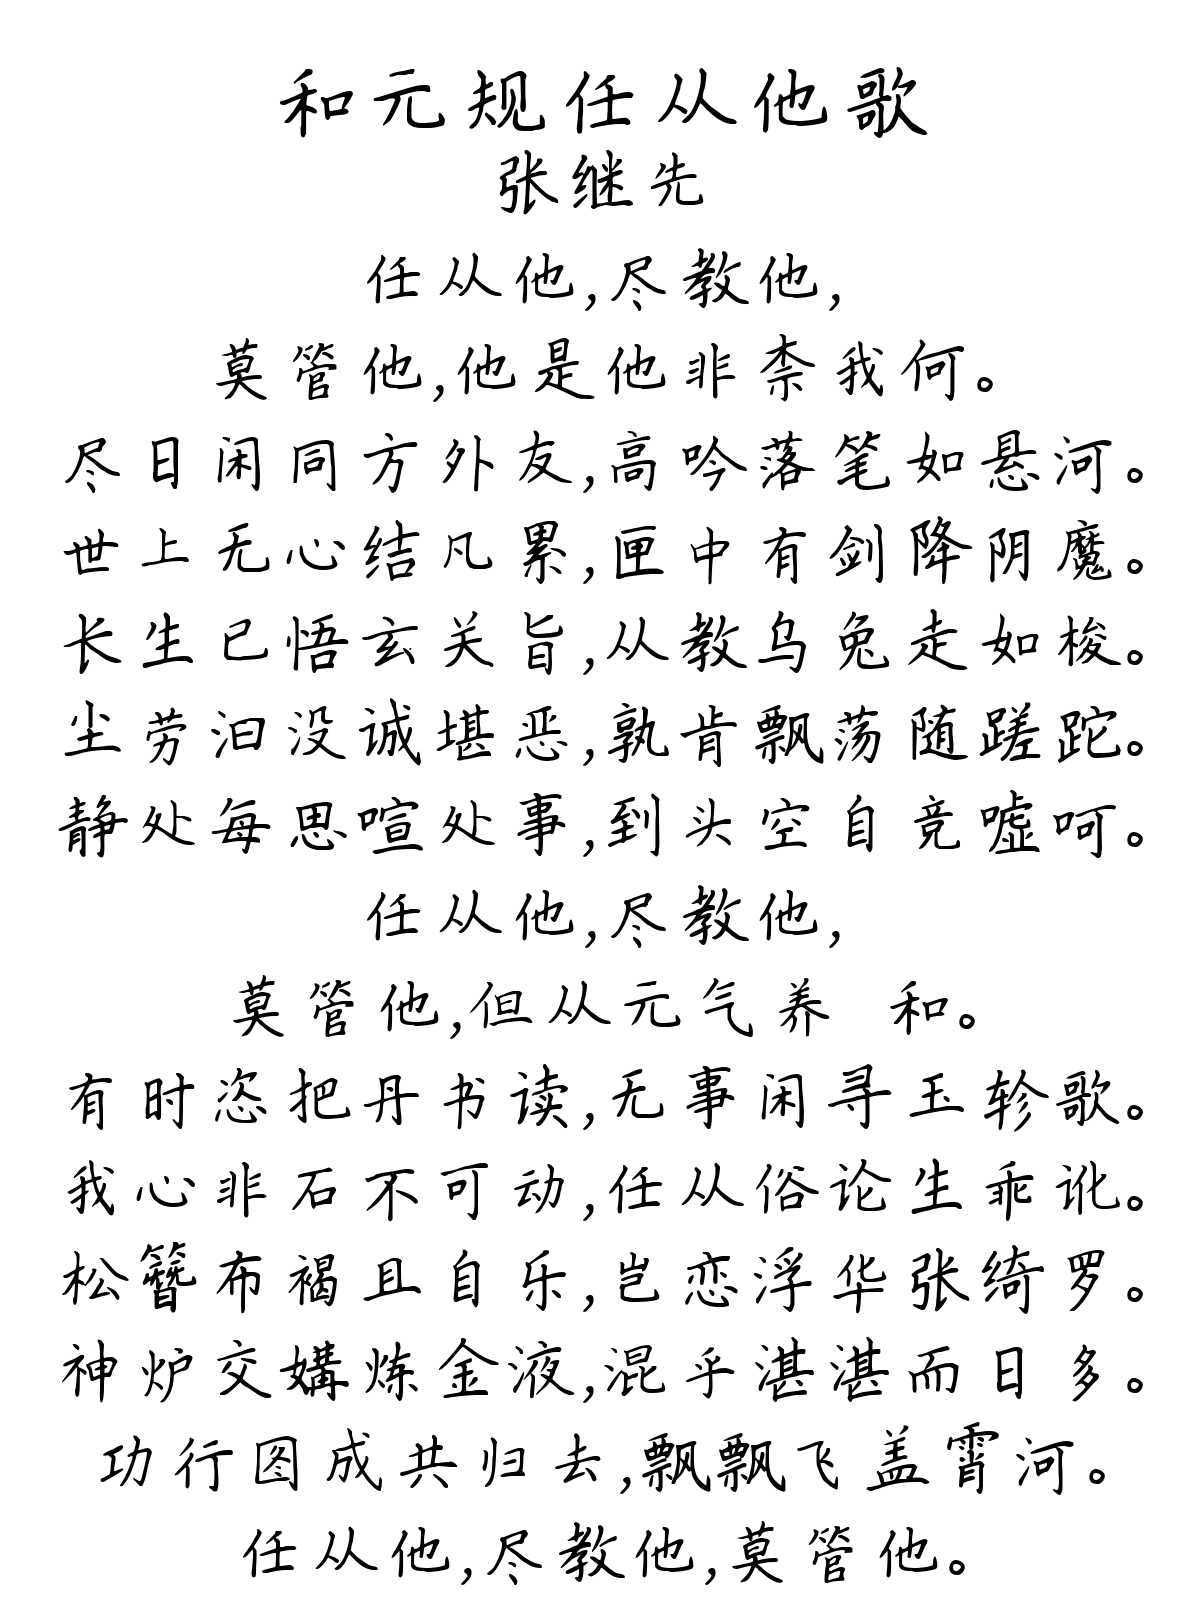 和元规任从他歌
张继先
任从他,尽教他,
莫管他,他是他非柰我何。
尽日闲同方外友,高吟落笔如悬河。
世上无心结凡累,匣中有剑降阴魔。
长生已悟玄关旨,从教乌兔走如梭。
尘劳汩没诚堪恶,孰肯飘荡随蹉跎。
静处每思喧处事,到头空自竞嘘呵。
任从他,尽教他,
莫管他,但从元气养 和。
有时恣把丹书读,无事闲寻玉轸歌。
我心非石不可动,任从俗论生乖讹。
松簪布褐且自乐,岂恋浮华张绮罗。
神炉交媾炼金液,混乎湛湛而日多。
功行图成共归去,飘飘飞盖霄河。
任从他,尽教他,莫管他。